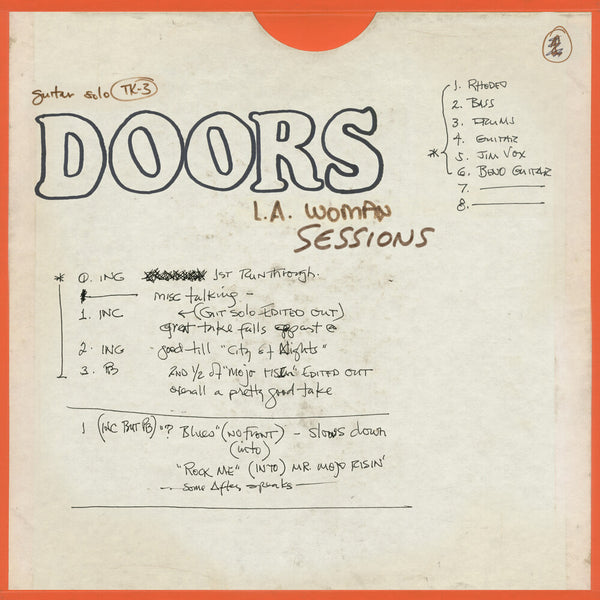 guitar solo TK-3
DOORS
L.A. WOMAN
SESSIONS
1. RHODES
2. BASS
3. DRUMS
4. GUITAR
* 5. JIM VOX
6. BEND GUITAR
7.
8.
* 0. INC 1ST RUNTHROUGH.
misc talking -
1. INC ←(GIT SOLO EDITED OUT)
great take falls apart @
2. INC good till "City of Nights"
3. PB 2ND 1/2 of "MOJO RISIN" EDITED OUT
overall a pretty good take
1 (INC BUT PB) "? Blues" (NO FRONT) - slows down
(into)
"ROCK ME" (INTO) MR. MOJO RISIN'
- some After speaks -